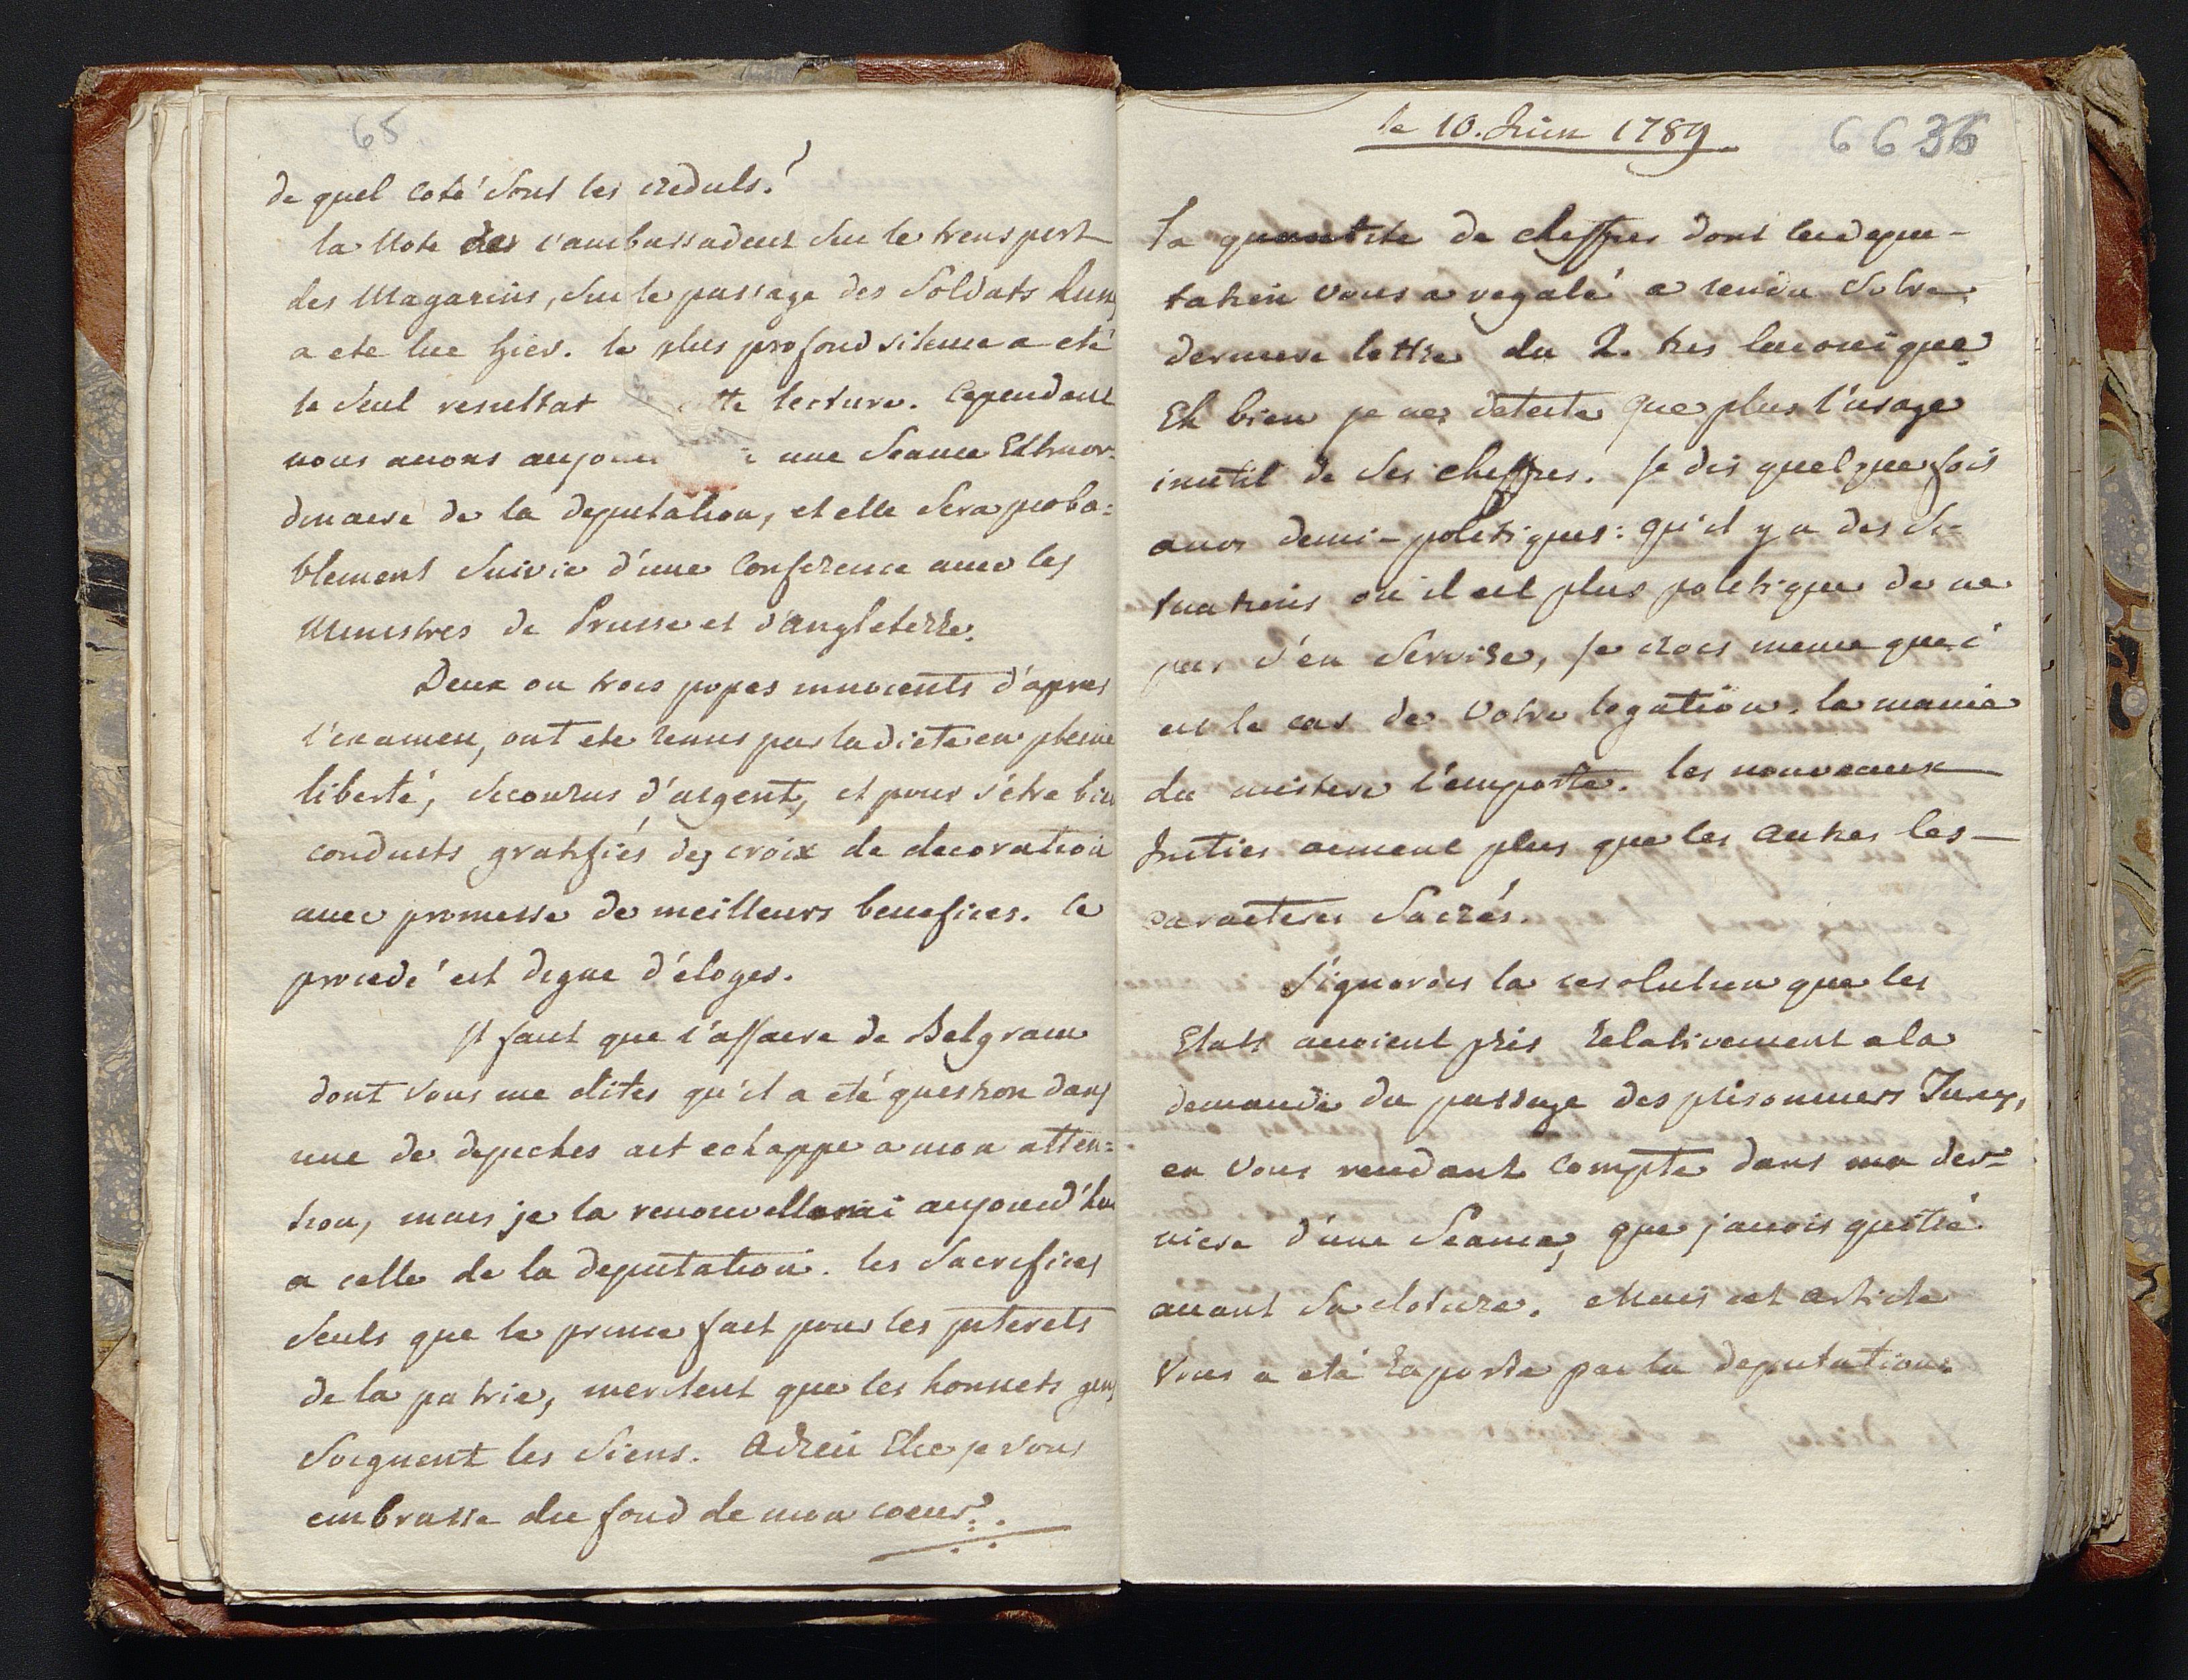 65
de quel coté sont les creduls?
la Note de l'ambassadeur sur le transport
des Magazins, sur le passage des Soldats
a ete lue hier. le plus profond silence a eté
le seul resultat tte lecture. Cependant
nous avons une Seance Extraor-
dinaire de la deputation, et elle sera proba=
blement suivie d'une Conference avec les
Ministres de Prusse et d'angleterre.
Deux ou trois popes innocents d'apres
l'examen, ont ete remis par la diete en pleine
liberté, secourus d'argent, et pour s'étre bien
conduits gratifiés des croix de decoration
avec promesse de meilleurs benefices. ce
procedé est digne d'éloges.
Il faut que l'affaire de Belgram
dont vous me dites qu'il a eté question dans
une de depeches ait echappe a mon atten=
tion, mais je la renouvellerai aujourd'hui
a celle de la deputation. les Sacrifices
seuls que le prince fait pour les interets
de la patrie, meritent que les honnets gens
soignent les siens. Adieu Cher je vous
embrasse du fond de mon coeur.
le 10. Juin 1789
66 36
La quantite de cheffres dont la depu-
tation vous a regalé a rendu votre
derniere lettre du 2. tres laconique.
Eh bien je ne deteste que plus l'usage
inutil de ses cheffres. Je dis quelque fois
a nos demi-politiques: qu'il y a des si-
tuations ou il est plus politique de ne
pas s'en servire, je crois meme que c'
est le cas de votre legation. la manie
du mistere l'emporte. les nouveaux
initiés aiment plus que les autres les
caracteres Sacrés.
J'ignorois la resolution que les
Etats avoient pris relativement a la
demande du passage des prisonniers Turcs,
en vous rendant compte dans ma der=
niere d'une Seance, que j'avois quitté
avant sa cloture. Mais cet article
vous a eté raporté par la deputation.